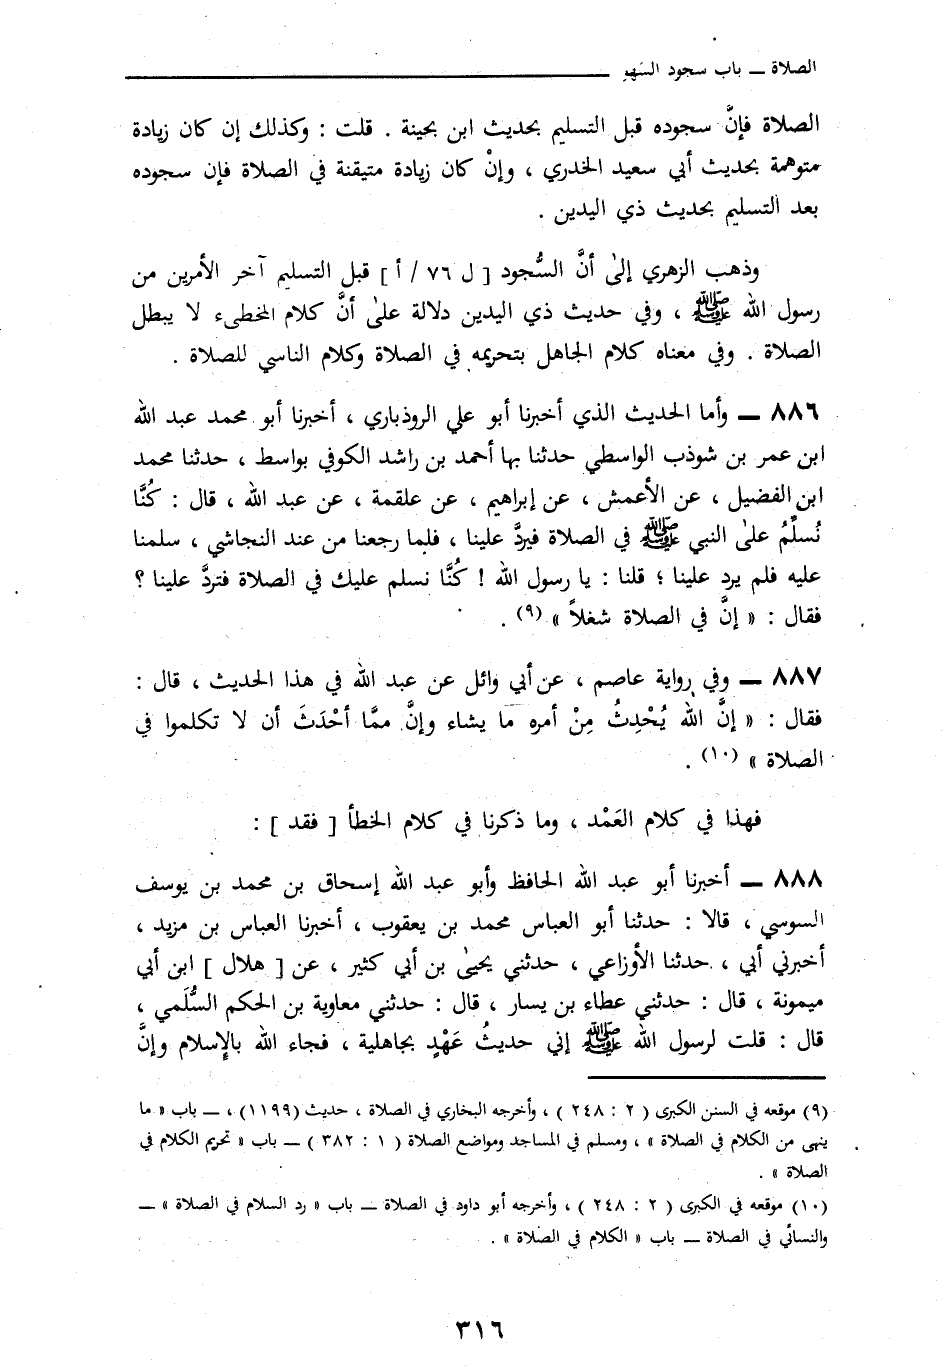 الصلاة ــ باب سجود السَهوِ
الصلاة فإنَّ سجوده قبل التسليم بحديث ابن بحينة . قلت : وكذلك إن كان زيادة
متوهمة بحديث أبي سعيد الخدري ، وإنْ كان زيادة متيقنة في الصلاة فإن سجوده
بعد التسليم بحديث ذي اليدين .
وذهب الزهري إلىٰ أنَّ السُّجود [ ل ٧٦ / أ ] قبل التسليم آخر الأمرين من
رسول الله ﷺ ، وفي حديث ذي اليدين دلالة علىٰ أنَّ كلام المخطىء لا يبطل
الصلاة . وفي معناه كلام الجاهل بتحريمه في الصلاة وكلام الناسي للصلاة .
٨٨٦ ــ وأما الحديث الذي أخبرنا أبو علي الروذباري ، أخبرنا أبو محمد عبد الله
ابن عمر بن شوذب الواسطي حدثنا بها أحمد بن راشد الكوفي بواسط ، حدثنا محمد
ابن الفضيل ، عن الأعمش ، عن إبراهيم ، عن علقمة ، عن عبد الله ، قال : كُنَّا
نُسلِّمُ علىٰ النبي ﷺ في الصلاة فيردَّ علينا ، فلما رجعنا من عند النجاشي ، سلمنا
عليه فلم يرد علينا ؛ قلنا : يا رسول الله ! كُنَّا نسلم عليك في الصلاة فتردَّ علينا ؟
فقال : « إنَّ في الصلاة شغلاً » (٩) .
٨٨٧ ــ وفي رواية عاصم ، عن أبي وائل عن عبد الله في هذا الحديث ، قال :
فقال : « إنَّ الله يُحْدِثُ مِنْ أمره ما يشاء وإنَّ ممَّا أحْدَثَ أن لا تكلموا في
الصلاة » (١٠) .
فهذا في كلام العَمْد ، وما ذكرنا في كلام الخطأ [ فقد ] :
٨٨٨ ــ أخبرنا أبو عبد الله الحافظ وأبو عبد الله إسحاق بن محمد بن يوسف
السوسي ، قالا : حدثنا أبو العباس محمد بن يعقوب ، أخبرنا العباس بن مزيد ،
أخبرني أبي ، حدثنا الأوزاعي ، حدثني يحيىٰ بن أبي كثير ، عن [ هلال ] ابن أبي
ميمونة ، قال : حدثني عطاء بن يسار ، قال : حدثني معاوية بن الحكم السُّلَمي ،
قال : قلت لرسول الله ﷺ إني حديثُ عَهْدٍ بجاهلية ، فجاء الله بالإسلام وإنَّ
(٩) موقعه في السنن الكبرى ( ٢ : ٢٤٨ ) ، وأخرجه البخاري في الصلاة ، حديث (١١٩٩) ، ــ باب « ما
ينهى من الكلام في الصلاة » ، ومسلم في المساجد ومواضع الصلاة ( ١ : ٣٨٢ ) ــ باب « تحريم الكلام في
الصلاة » .
(١٠) موقعه في الكبرى ( ٢ : ٢٤٨ ) ، وأخرجه أبو داود في الصلاة ــ باب « رد السلام في الصلاة » ــ
والنسائي في الصلاة ــ باب « الكلام في الصلاة » .
٣١٦